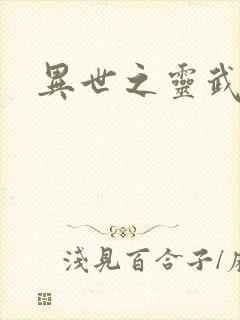 異世之靈武
淺見百合子/